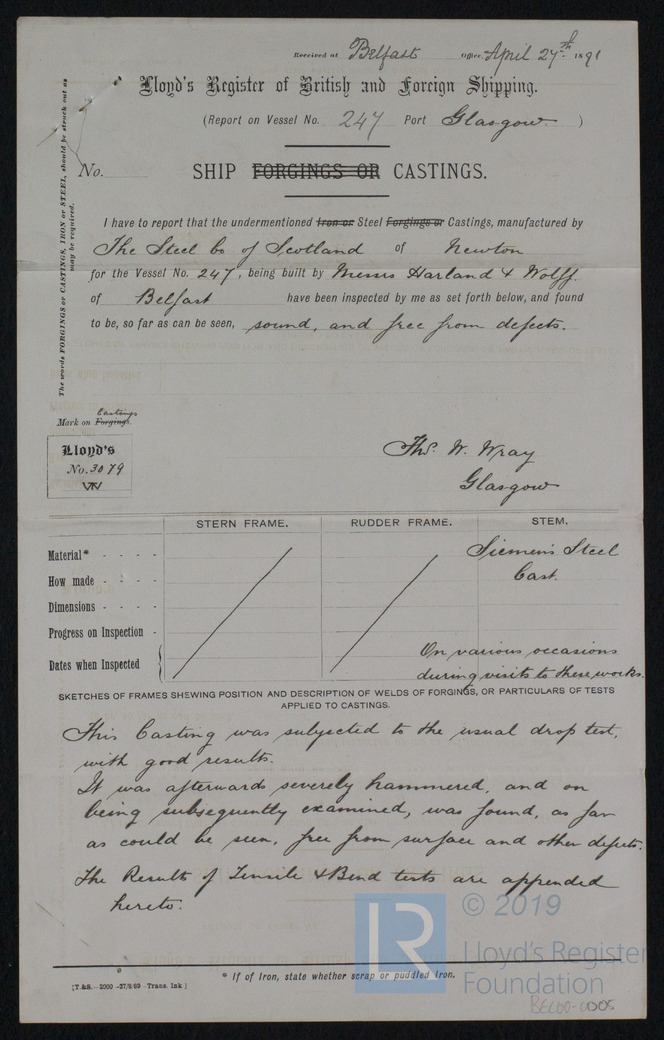 Received at Belfast Office, April 27th 1891
Lloyd's Register of British and Foreign Shipping.
(Report on Vessel No. 247 Port Glasgow. )
No. SHIP FORGINGS OR CASTINGS.
The words FORGINGS or CASTINGS, IRON or STEEL, should be struck out as
may be required.
I have to report that the undermentioned Iron or Steel Forgings or Castings, manufactured by
The Steel Co of Scotland of Newton
for the Vessel No. 247, being built by Messrs Harland & Wolff
of Belfast have been inspected by me as set forth below, and found
to be, so far as can be seen, sound, and free from defects.
Castings
Mark on Forgings.
Lloyd's
No. 3079
Thos. W. Wray
Glasgow
STERN FRAME. RUDDER FRAME. STEM.
Material* - - - - Siemens Steel
How made - - - - Cast.
Dimensions - - - -
Progress on Inspection -
Dates when Inspected On various occasions
during visits to these works.
SKETCHES OF FRAMES SHEWING POSITION AND DESCRIPTION OF WELDS OF FORGINGS, OR PARTICULARS OF TESTS
APPLIED TO CASTINGS.
This Casting was subjected to the usual drop test,
with good results.
It was afterwards severely hammered, and on
being subsequently examined, was found, as far
as could be seen, free from surface and other defects.
The Results of Tensile & Bend tests are appended
hereto.
* If of Iron, state whether scrap or puddled Iron.
[T.&S.- 2000 -27/8/89 - Trans. Ink]
LR
© 2019
Lloyd's Register
Foundation